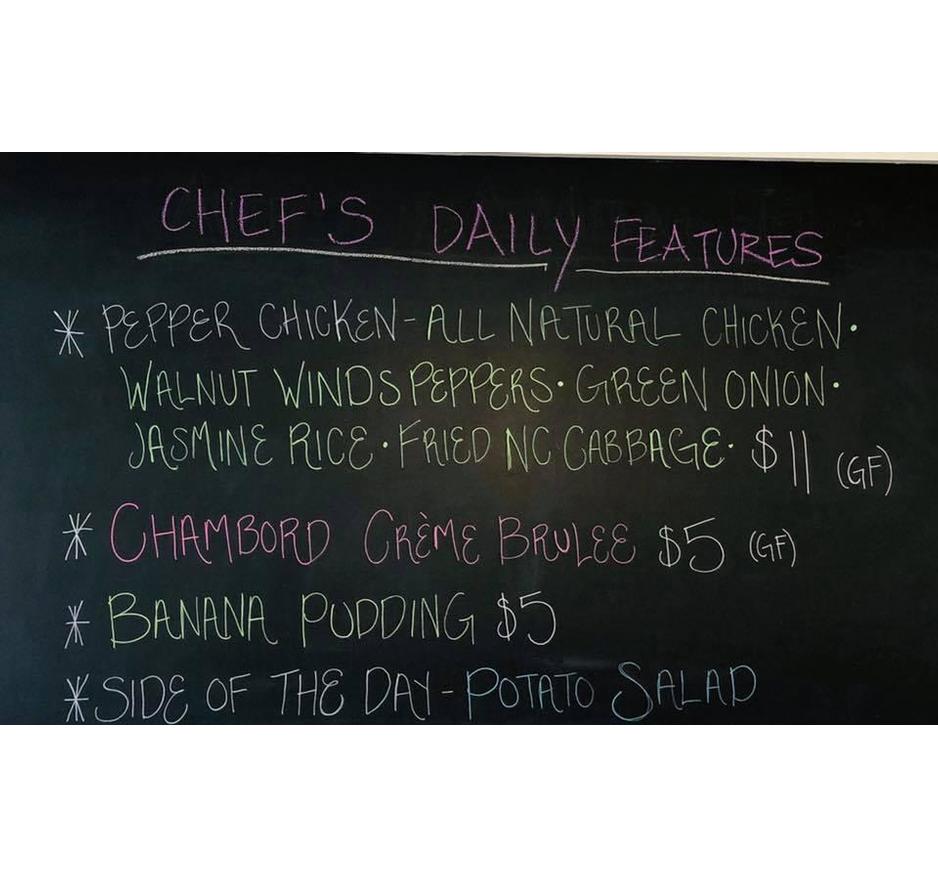 CHEF'S DAILY FEATURES
* PEPPER CHICKEN - ALL NATURAL CHICKEN •
WALNUT WINDS PEPPERS • GREEN ONION •
JASMINE RICE • FRIED NC CABBAGE • $11 (GF)
* CHAMBORD CRÈME BRULEE $5 (GF)
* BANANA PUDDING $5
* SIDE OF THE DAY - POTATO SALAD